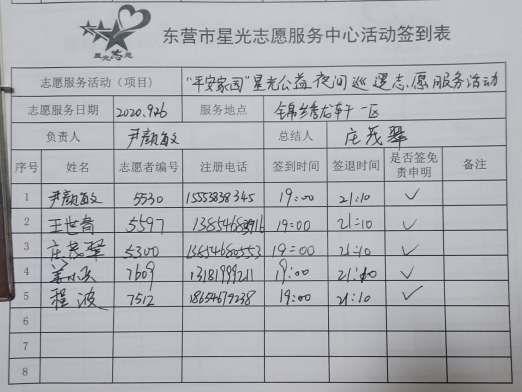 星光志愿
东营市星光志愿服务中心活动签到表
志愿服务活动（项目） "平安家园"星光公益夜间巡逻志愿服务活动
志愿服务日期 2020.9.26 服务地点 锦绣龙轩一区
负责人 尹颜文 总结人 庄茂翠
序号 姓名 志愿者编号 注册电话 签到时间 签退时间 是否签免责申明 备注
1 尹颜文 5530 15555838345 19:00 21:10 ✓
2 王世春 5697 19:00 21:10 ✓
3 庄茂翠 5300 19:00 21:10 ✓
4 7609 13181999211 19:00 21:10 ✓
5 程波 7512 18654679238 19:00 21:10 ✓
6
7
8